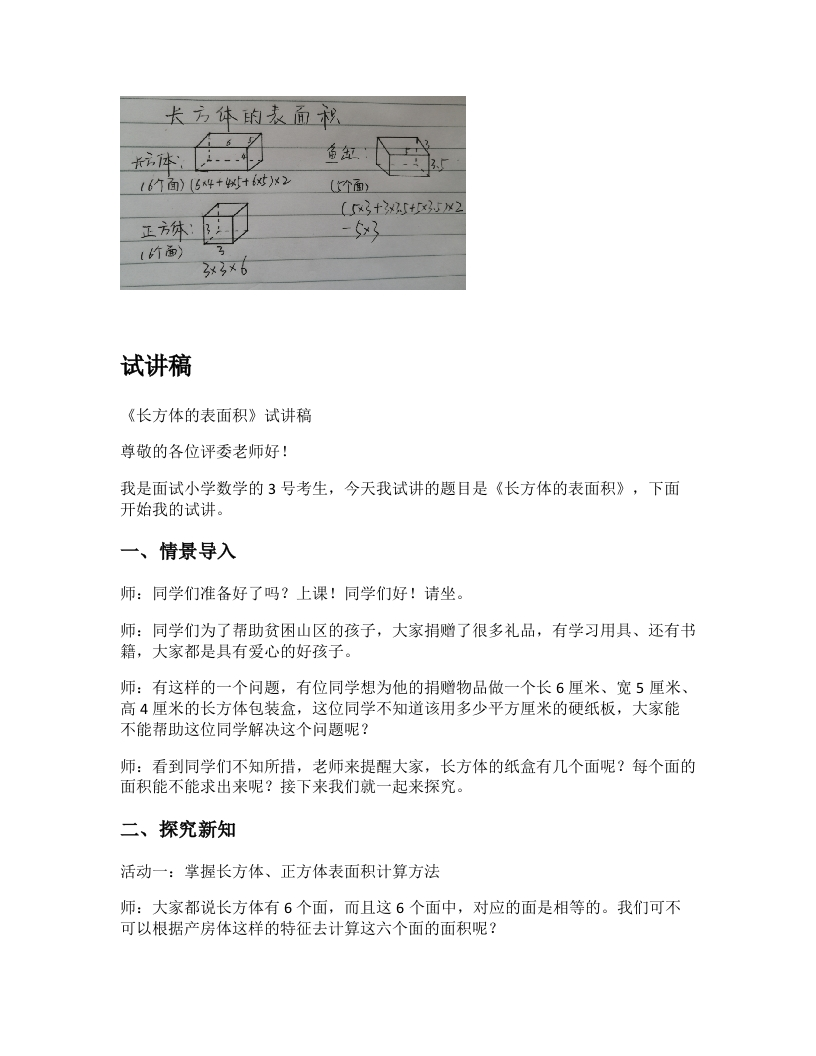 长方体的表面积
长方体:
6 5 4
(6个面) (6×4+4×5+6×5)×2
鱼缸:
5 3 3.5
(5个面)
(5×3+3×3.5+5×3.5)×2
-5×3
正方体:
3
(6个面)
3
3×3×6
试讲稿
《长方体的表面积》试讲稿
尊敬的各位评委老师好!
我是面试小学数学的 3 号考生,今天我试讲的题目是《长方体的表面积》,下面
开始我的试讲。
一、情景导入
师:同学们准备好了吗?上课!同学们好!请坐。
师:同学们为了帮助贫困山区的孩子,大家捐赠了很多礼品,有学习用具、还有书
籍,大家都是具有爱心的好孩子。
师:有这样的一个问题,有位同学想为他的捐赠物品做一个长 6 厘米、宽 5 厘米、
高 4 厘米的长方体包装盒,这位同学不知道该用多少平方厘米的硬纸板,大家能
不能帮助这位同学解决这个问题呢?
师:看到同学们不知所措,老师来提醒大家,长方体的纸盒有几个面呢?每个面的
面积能不能求出来呢?接下来我们就一起来探究。
二、探究新知
活动一:掌握长方体、正方体表面积计算方法
师:大家都说长方体有 6 个面,而且这 6 个面中,对应的面是相等的。我们可不
可以根据产房体这样的特征去计算这六个面的面积呢?